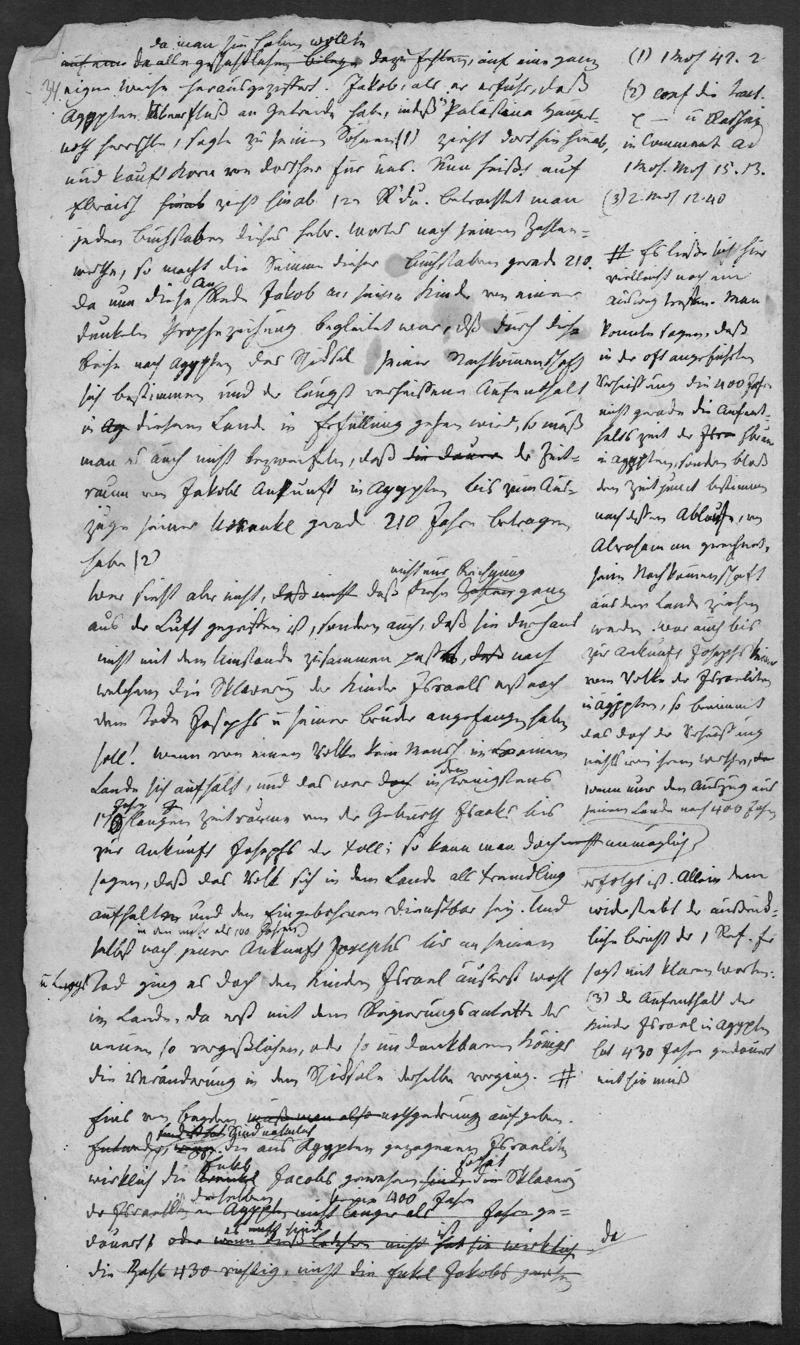 da man sie haben wollte
da alle geschichtlichen dazu fehlen, auf eine ganz
eigene Weise herausgeziffert. Jakob, als er erfuhr, daß
Ägypten Überfluß an Getreide habe, indeß Palästina Hungers-
noth herrschte, sagte zu seinen Söhnen (1) zieht dorthin hinab,
und kauft Korn von dorther für uns. Nun heißt auf
Ebraisch hinab zieht hinab רדו R'du. Betrachtet man
jeden Buchstaben dieses hebr. Wortes nach seinem Zahlen-
werthe, so macht die Summe dieser Buchstaben gerade 210.
Da nun diese Anrede Jakob an seine Kinder von einer
dunkeln Prophezeihung begleitet war, daß durch diese
Reise nach Agypten das Schicksal seiner Nachkommenschaft
sich bestimmen und der längst verheißene Aufenthalt
in Ag diesem Lande in Erfüllung gehen wird, so muß
man es auch nicht bezweifeln, daß die Dauer der Zeit-
raum von Jakobs Ankunft in Agypten bis zum Aus-
zuge seiner Urenkel grade 210 Jahre betragen
habe (2)
nicht nur Rechnung
Wer sieht aber nicht, daß nicht daß diese ganz
aus der Luft gegriffen ist, sondern auch, daß sie durchaus
nicht mit dem Umstande zusammen paßt, nach
welchem die Sklaverey der Kinder Israels erst nach
dem Tode Josephs u seiner Brüder angefangen haben
soll! Wenn von einem Volke kein Mensch in
Lande sich aufhält, und das war doch in dem wenigstens
langen Zeitraume von der Geburth Isaaks bis
zur Ankunft Josephs der Fall; so kann man doch unmöglich
sagen, daß das Volk sich in dem Lande als Fremdling
aufhalten und den Eingebohrenen dienstbar sey. Und
in den mehr als 100 Jahren
selbst nach jener Ankunft Josephs bis an seinen
Tod ging es doch den Kindern Israel äußerst wohl
im Lande, da erst mit dem Regierungsantritte des
neuen so vergeßlichen, oder so undankbaren Königs
die Veränderung in dem Schicksale derselben vorging. #
Eins von beyden muß man also nothgedrung aufgeben.
Entweder sind die aus Agypten gezogenen Israeliten
wirklich die Enkel Jacobs gewesen Sklaverey
derselben 400 Jahre
der Israeliten in Agypten nicht länger als Jahre ge-
dauert oder
die Zahl 430 richtig, nicht die Enkel Jakobs
da
(1) 1 Mos 42. 2
(2) conf die
u Raschy
in Comment ad
1 Mos. 15. 13.
(3) 2. Mos 12. 40
# Es ließe sich hier
vielleicht noch ein
Ausweg treffen. Man
konnte sagen, daß
in der oft angeführten
Verheißung die 400 Jahre
nicht gerade die Aufent-
haltszeit der Isra Ebräer
in Agypten, sondern bloß
den Zeitpunct bestimmen
nach dessen Ablauf, von
Abraham an gerechnet,
seine Nachkommenschaft
aus dem Lande ziehen
werden. War auch bis
zur Ankunft Josephs keiner
vom Volke der Israeliten
in Ägypten, so benimmt
das doch der Verheißung
nichts von ihrem Werthe,
wenn nur der Auszug aus
jenem Lande nach 400 Jahren
erfolgt ist. Allein dem
widerstrebt der ausdrück-
liche Bericht der
sagt mit klaren Worten:
(3) der Aufenthalt der
Kinder Israel in Agypten
hat 430 Jahre gedauert
mithin muß